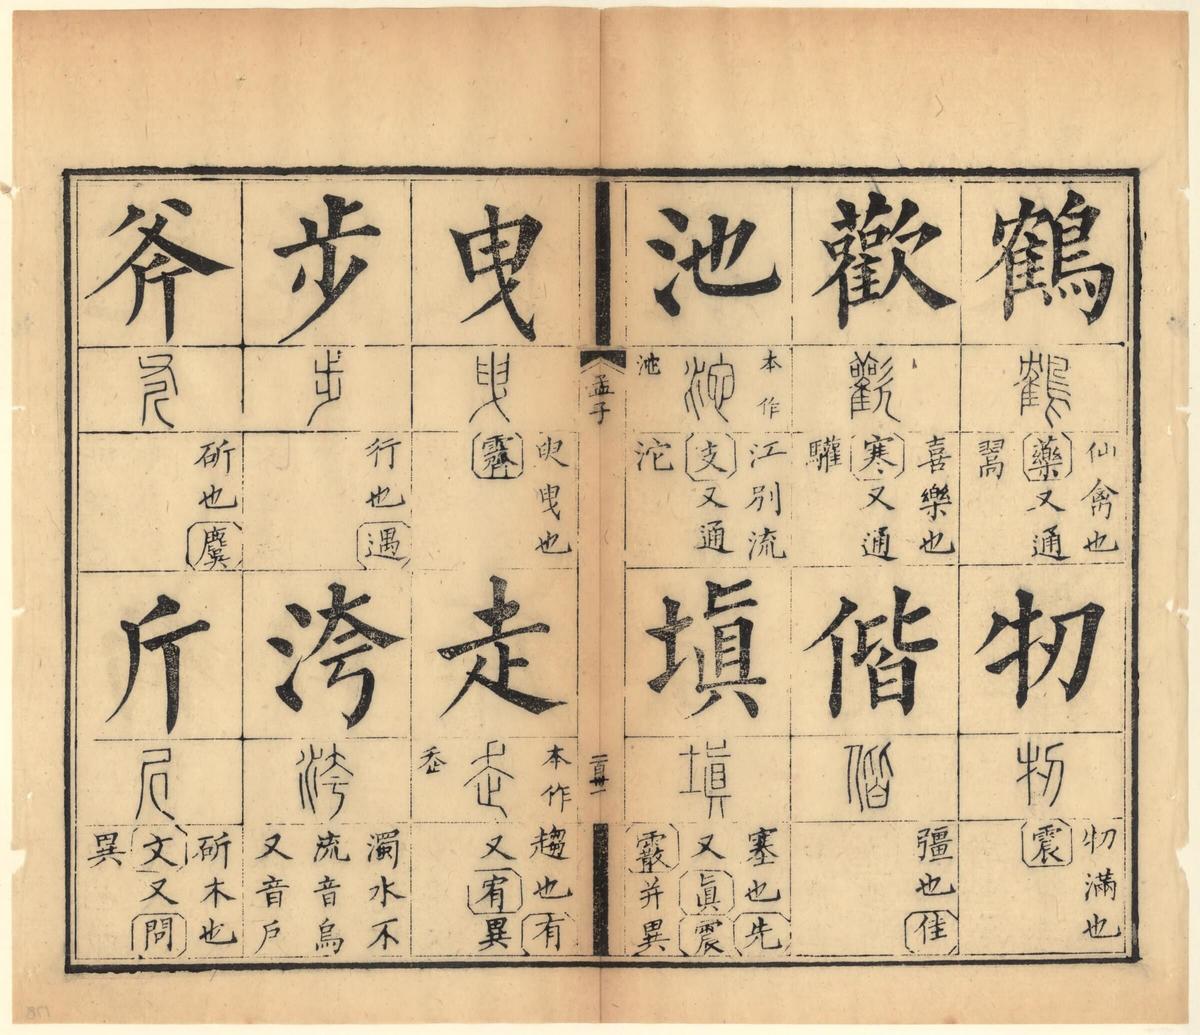 鶴
鶴
仙禽也
藥又通
翯
牣
牣
牣滿也
震
歡
歡
喜樂也
寒又通
驩
偕
偕
彊也佳
池
本作
池
沱
江別流
支又通
沱
塡
塡
塞也先
又眞震
霰并異
孟子
一百卅一
曳
曳
臾曳也
霽
走
本作
走
趨也有
又宥異
步
步
行也遇
洿
洿
濁水不
流音烏
又音戶
斧
斧
斫也麌
斤
斤
斫木也
文又問
異